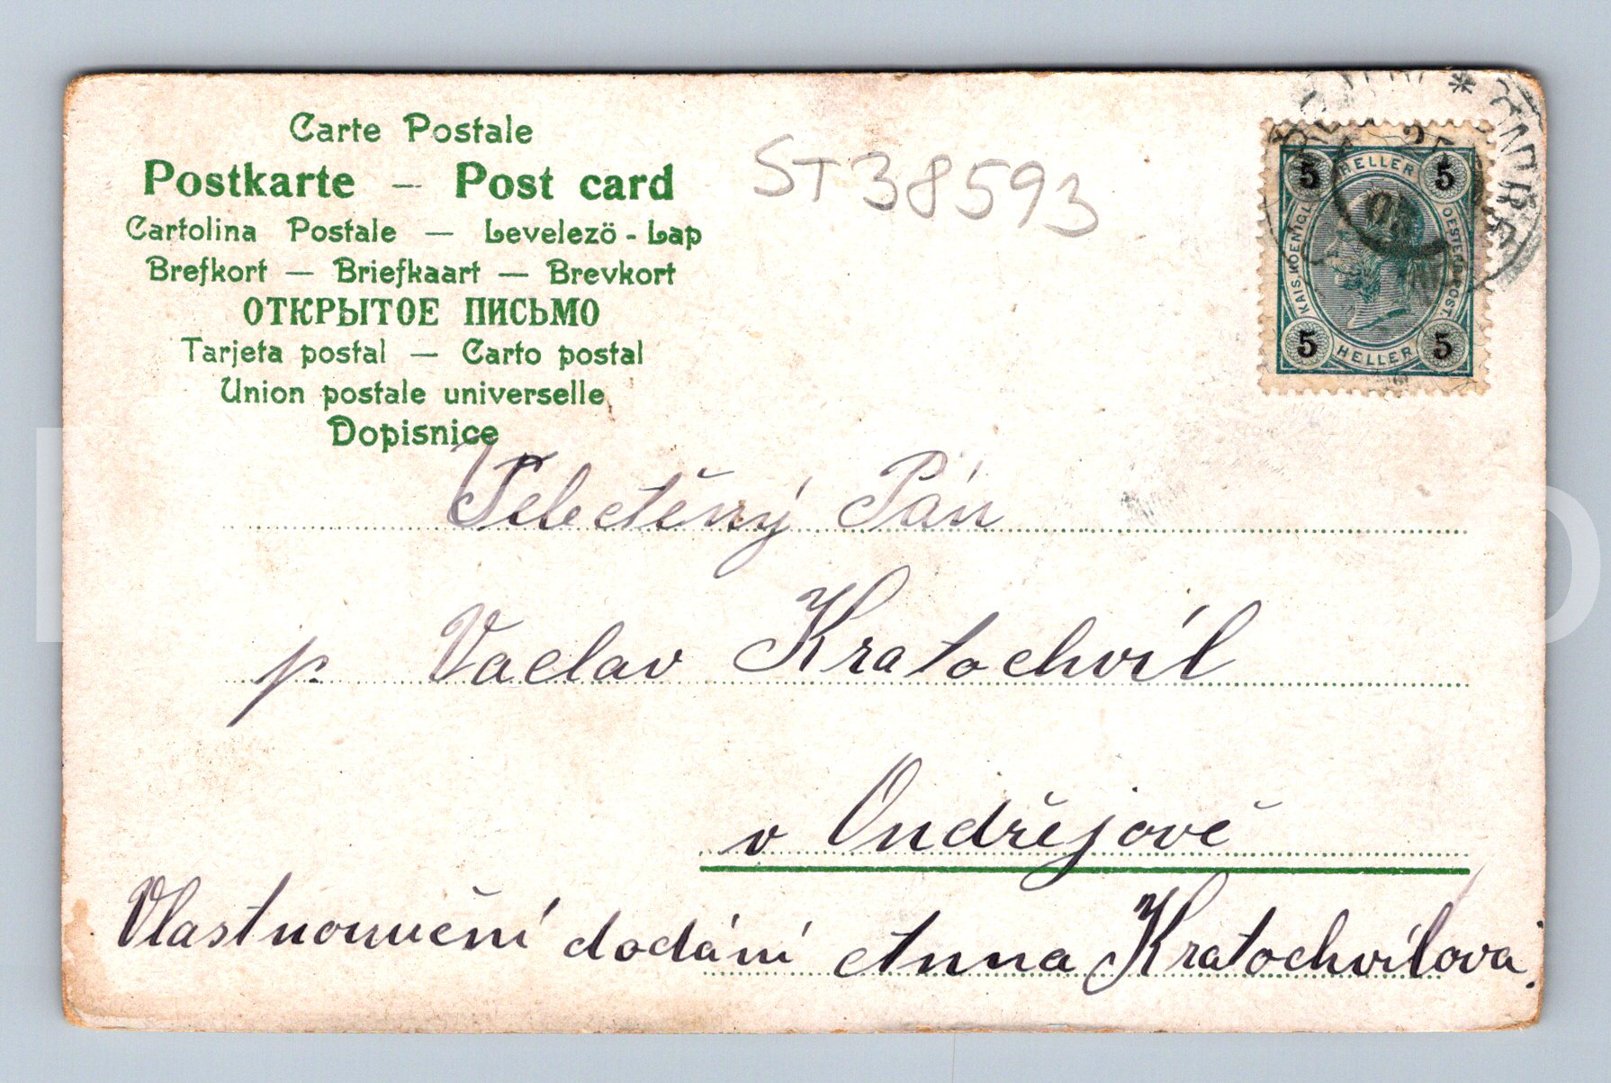 Carte Postale
Postkarte – Post card
Cartolina Postale — Levelezö - Lap
Brefkort — Briefkaart — Brevkort
ОТКРЫТОЕ ПИСЬМО
Tarjeta postal — Carto postal
Union postale universelle
Dopisnice
ST38593
5 HELLER 5
KAIS. KOENIGL. OESTERR. POST.
5 HELLER 5
Velectěný Pán
p. Vaclav Kratochvíl
v Ondřejově
dodání Anna Kratochvílova.